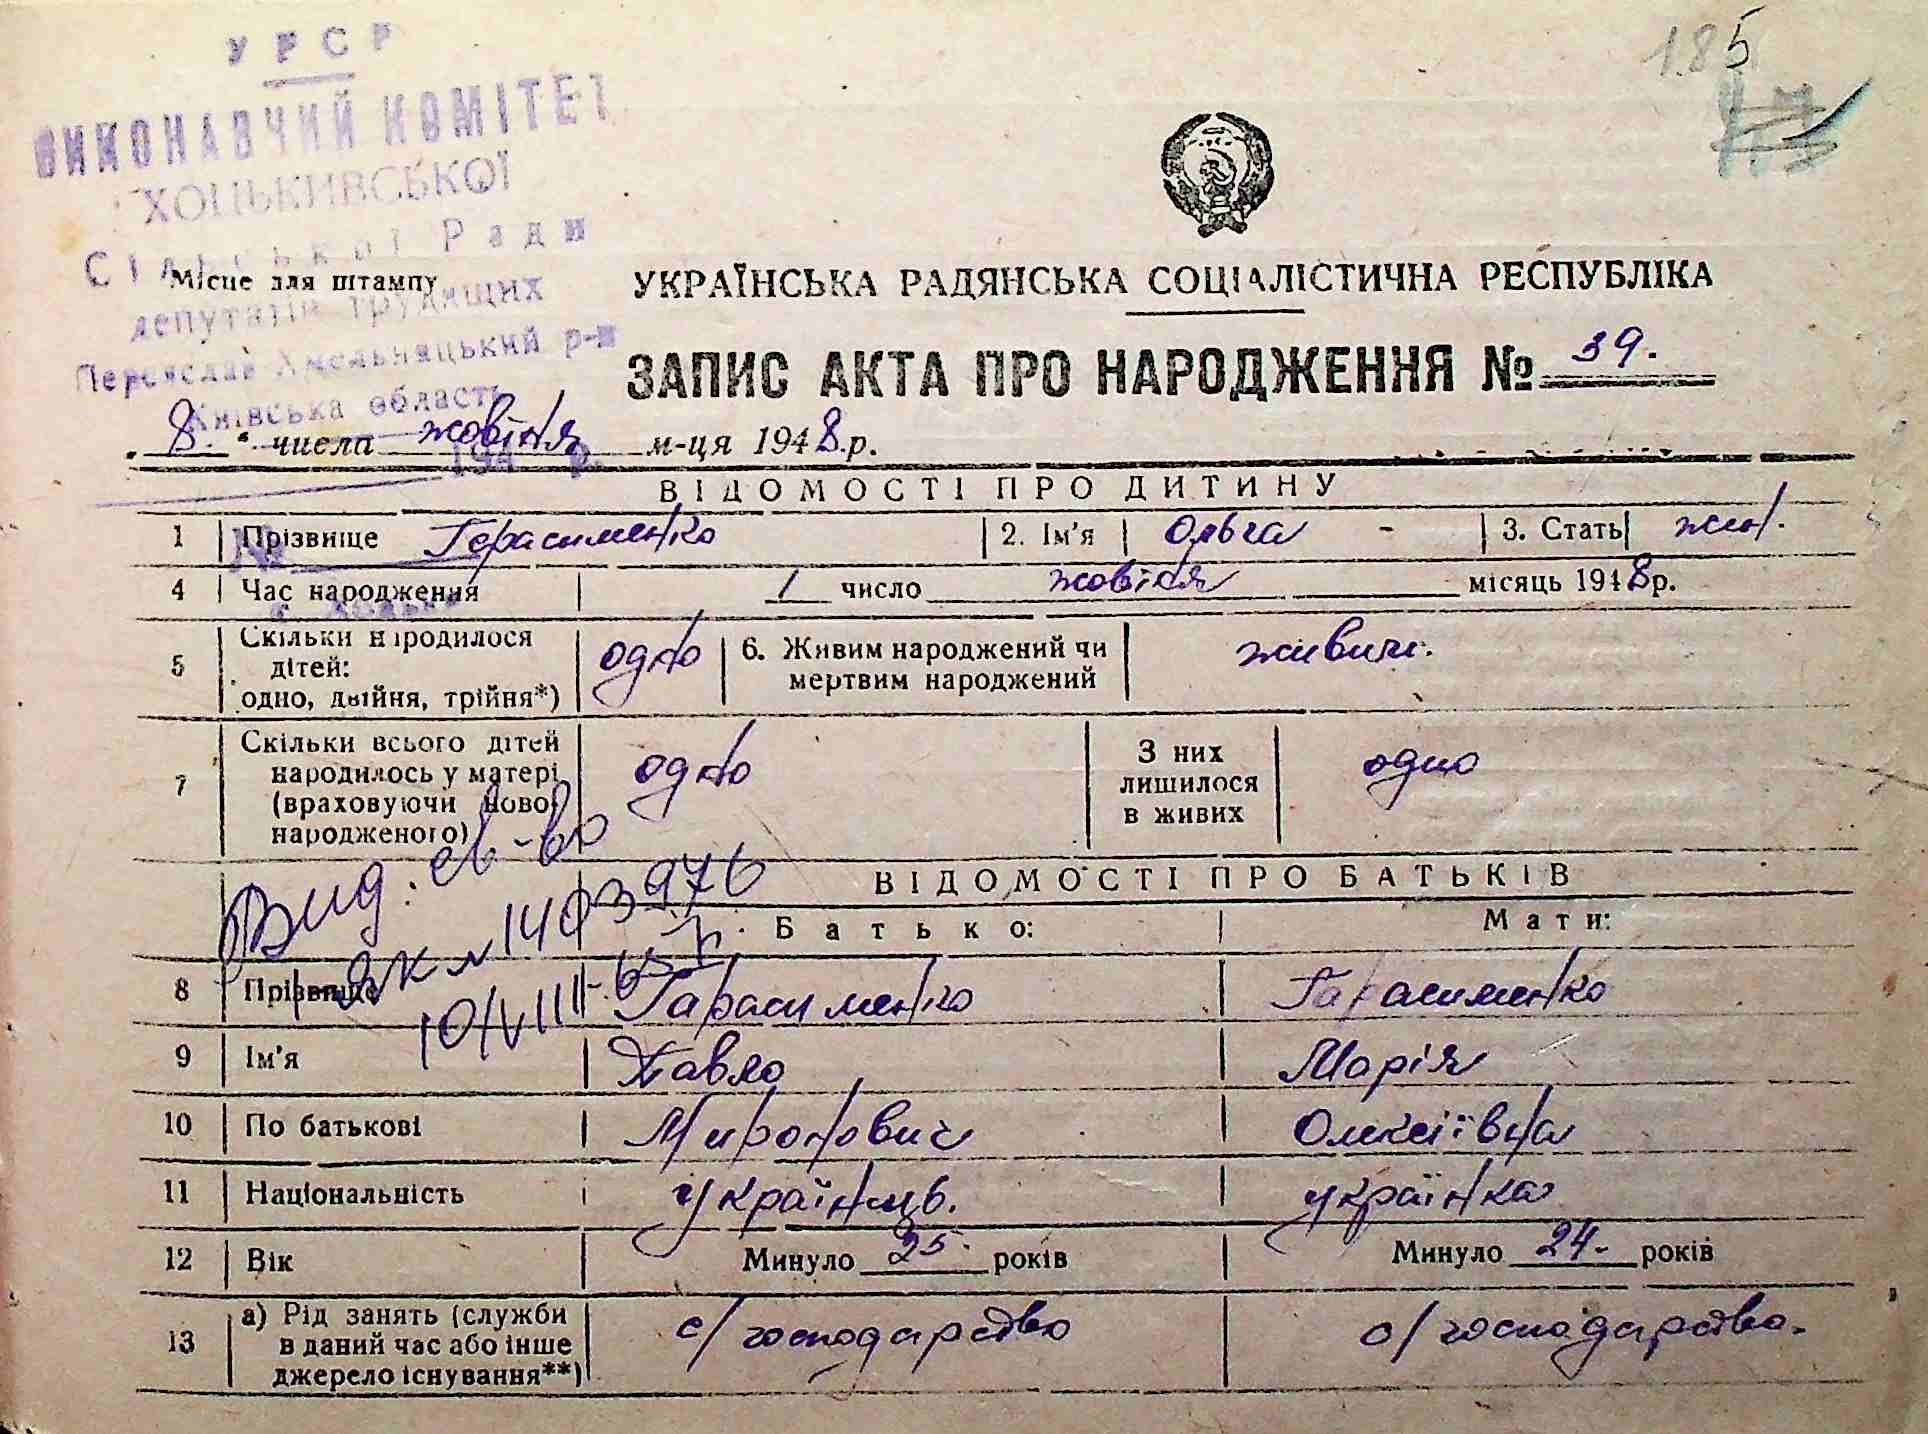 185
УРСР
ВИКОНАВЧИЙ КОМІТЕТ
ХОЦЬКИВСЬКОЇ
Сільської Ради
депутатів трудящих
Переяслав Хмельницький р-н
Київська область
194 р.
№
Місце для штампу
УКРАЇНСЬКА РАДЯНСЬКА СОЦІАЛІСТИЧНА РЕСПУБЛІКА
ЗАПИС АКТА ПРО НАРОДЖЕННЯ № 39.
„8.“ числа жовтня м-ця 1948.р.
ВІДОМОСТІ ПРО ДИТИНУ
1 Прізвище Герасименко 2. Ім'я Ольга - 3. Стать жін.
4 Час народження 1 число жовтня місяць 1948р.
5 Скільки народилося дітей: одно, двійня, трійня*) одно 6. Живим народжений чи мертвим народжений живим.
7 Скільки всього дітей народилось у матері (враховуючи ново народженого) одно З них лишилося в живих одно
Вид: св-во
ЯК № 1403976
10/VIII-65 р.
ВІДОМОСТІ ПРО БАТЬКІВ
Батько: Мати:
8 Прізвище Гарасименко Гарасименко
9 Ім'я Павло Марія
10 По батькові Миронович Олексіївна
11 Національність українць. українка
12 Вік Минуло 25. років Минуло 24. років
13 а) Рід занять (служби в даний час або інше джерело існування**) с/господарство с/господарство.